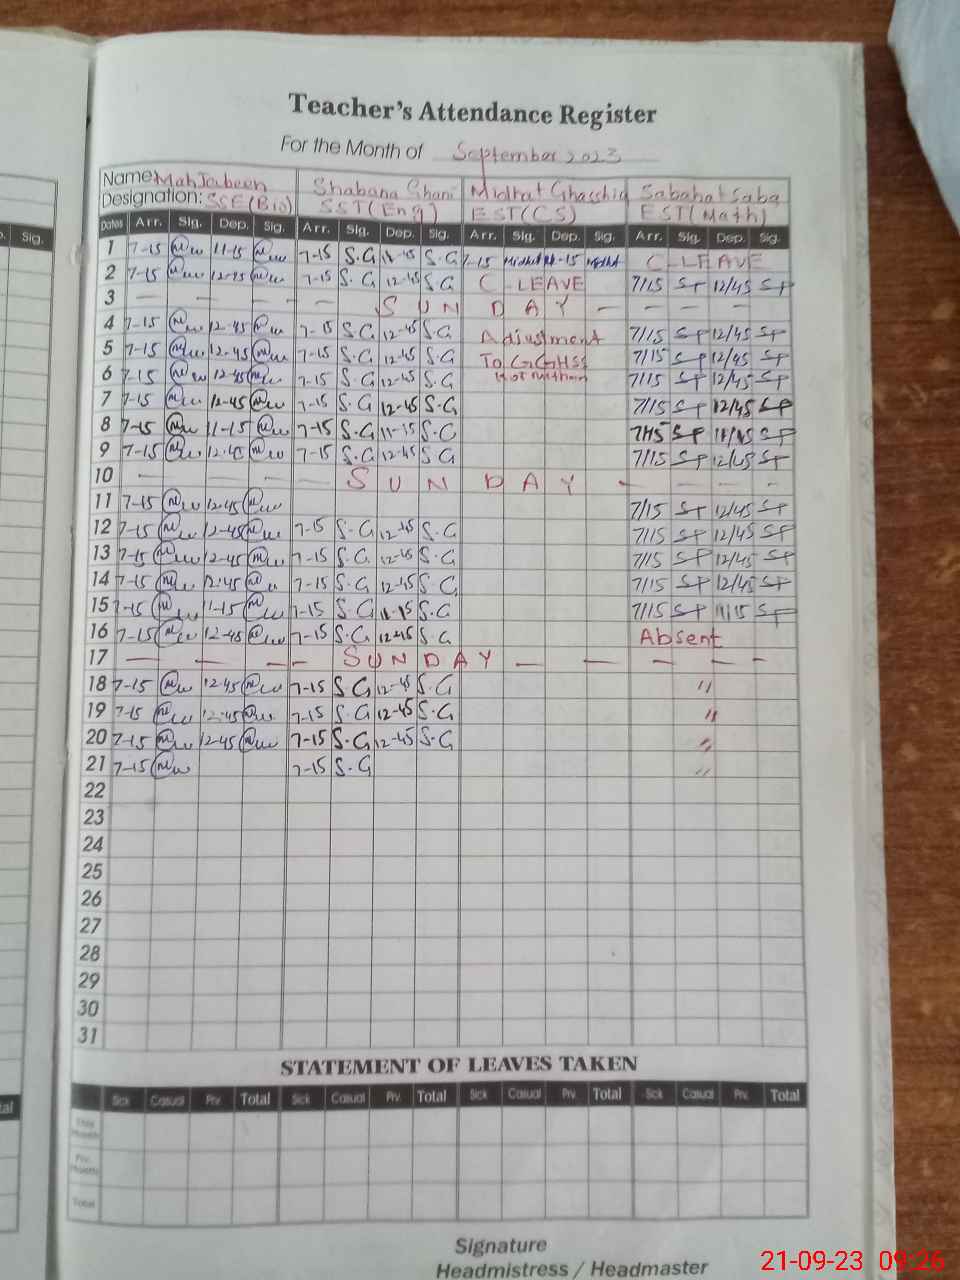 Teacher's Attendance Register
For the Month of September 2023
Name: MahJabeen Shabana Ghani Midhat Sabahat Saba
Designation: SSE(Bio) SST(Eng) EST(CS) EST(Math)
p. Sig. Dates Arr. Sig. Dep. Sig. Arr. Sig. Dep. Sig. Arr. Sig. Dep. Sig. Arr. Sig. Dep. Sig.
1 7-15 11-15 7-15 S.G 11-15 S.G 7-15 Midhat 11-15 Midhat C-LEAVE
2 7-15 12-45 7-15 S.G 12-45 S.G C-LEAVE 7/15 SP 12/45 SP
3 — — — — — SUNDAY — — — —
4 7-15 12-45 7-15 S.G 12-45 S.G Adjustment 7/15 SP 12/45 SP
5 7-15 12-45 7-15 S.G 12-45 S.G To GGHSS 7/15 SP 12/45 SP
6 7-15 12-45 7-15 S.G 12-45 S.G 7/15 SP 12/45 SP
7 7-15 12-45 7-15 S.G 12-45 S.G 7/15 SP 12/45 SP
8 7-15 11-15 7-15 S.G 11-15 S.G 7/15 SP SP
9 7-15 12-45 7-15 S.G 12-45 S.G 7/15 SP 12/45 SP
10 — — — — — SUNDAY — — — —
11 7-15 12-45 7/15 SP 12/45 SP
12 7-15 12-45 7-15 S.G 12-45 S.G 7/15 SP 12/45 SP
13 7-15 12-45 7-15 S.G 12-45 S.G 7/15 SP 12/45 SP
14 7-15 12-45 7-15 S.G 12-45 S.G 7/15 SP 12/45 SP
15 7-15 11-15 7-15 S.G 11-15 S.G 7/15 SP 11/15 SP
16 7-15 12-45 7-15 S.G 12-45 S.G Absent
17 — — — — SUNDAY — — — — —
18 7-15 12-45 7-15 S.G 12-45 S.G "
19 7-15 12-45 7-15 S.G 12-45 S.G "
20 7-15 12-45 7-15 S.G 12-45 S.G "
21 7-15 7-15 S.G "
22
23
24
25
26
27
28
29
30
31
STATEMENT OF LEAVES TAKEN
Sick Casual Prv. Total Sick Casual Prv. Total Sick Casual Prv. Total Sick Casual Prv. Total
This Month
Prv. Month
Total
Signature
Headmistress / Headmaster
21-09-23 09:26